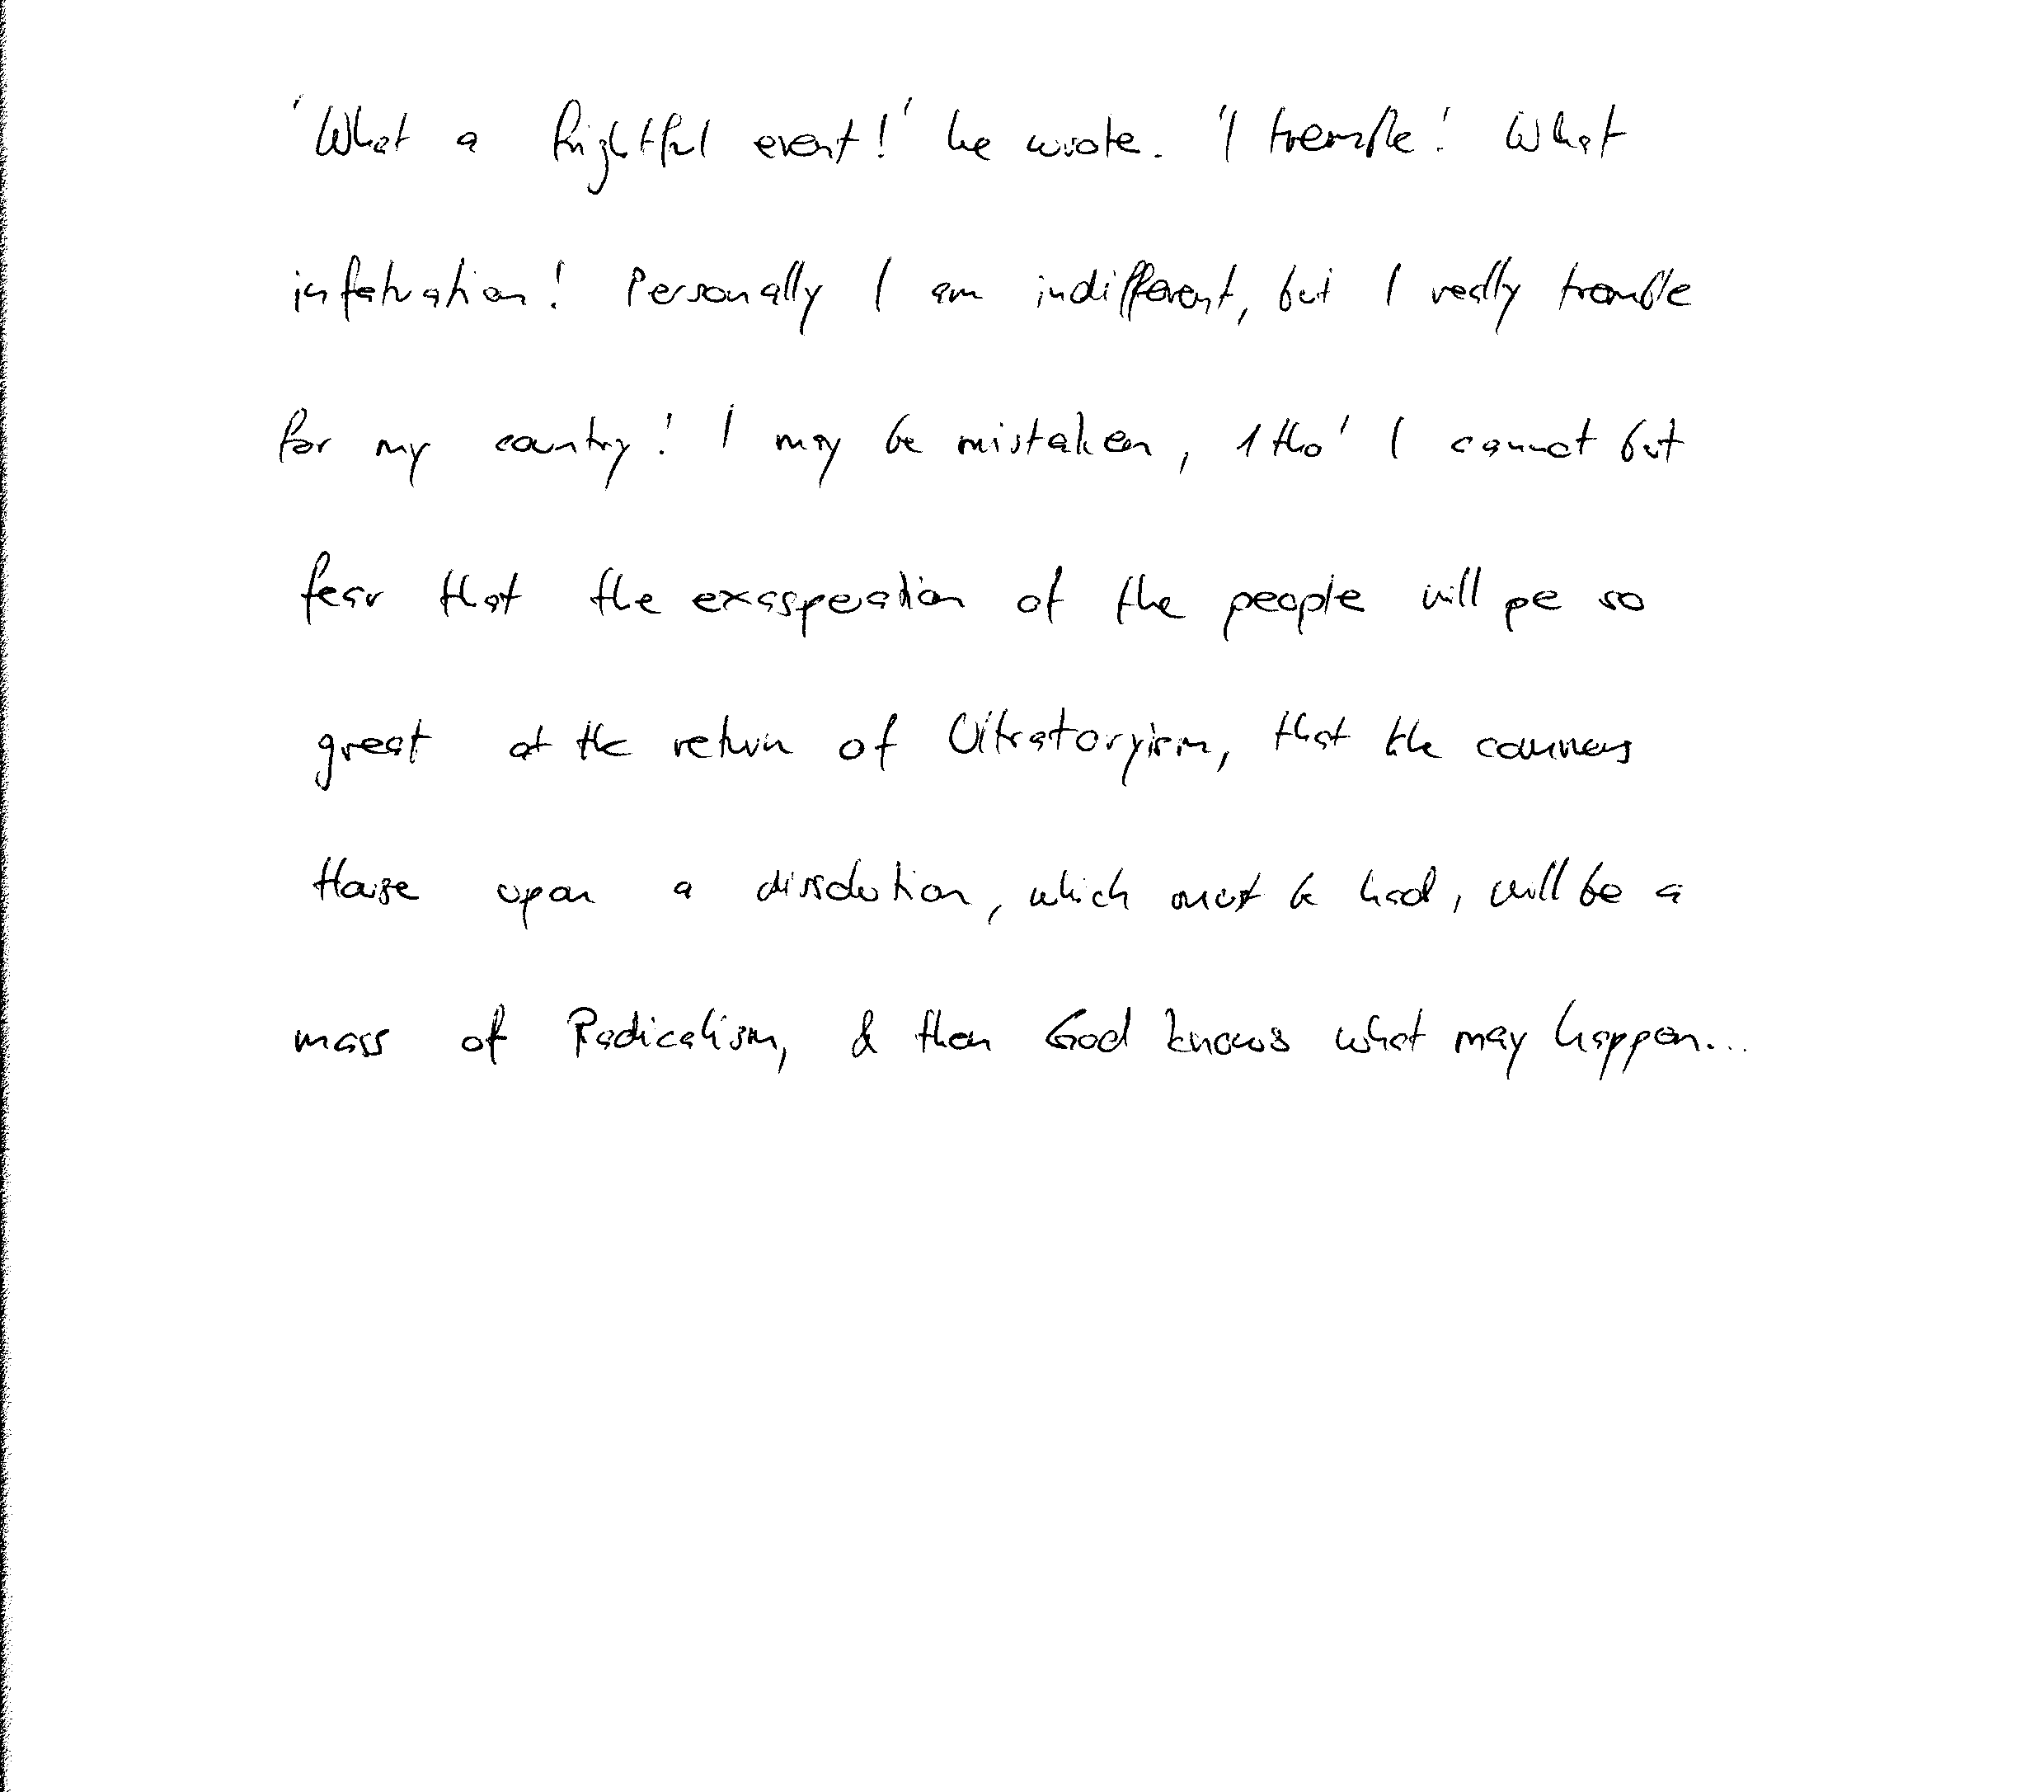 'What a frightful event!' he wrote. 'I tremble! What
infatuation! Personally I am indifferent, but I really tremble
for my country! I may be mistaken, 1 tho' I cannot but
fear that the exasperation of the people will pe so
great at the return of Ultratoryism, that the commons
House upon a dissolution, which must be had, will be a
mass of Radicalism, & then God knows what may happen...